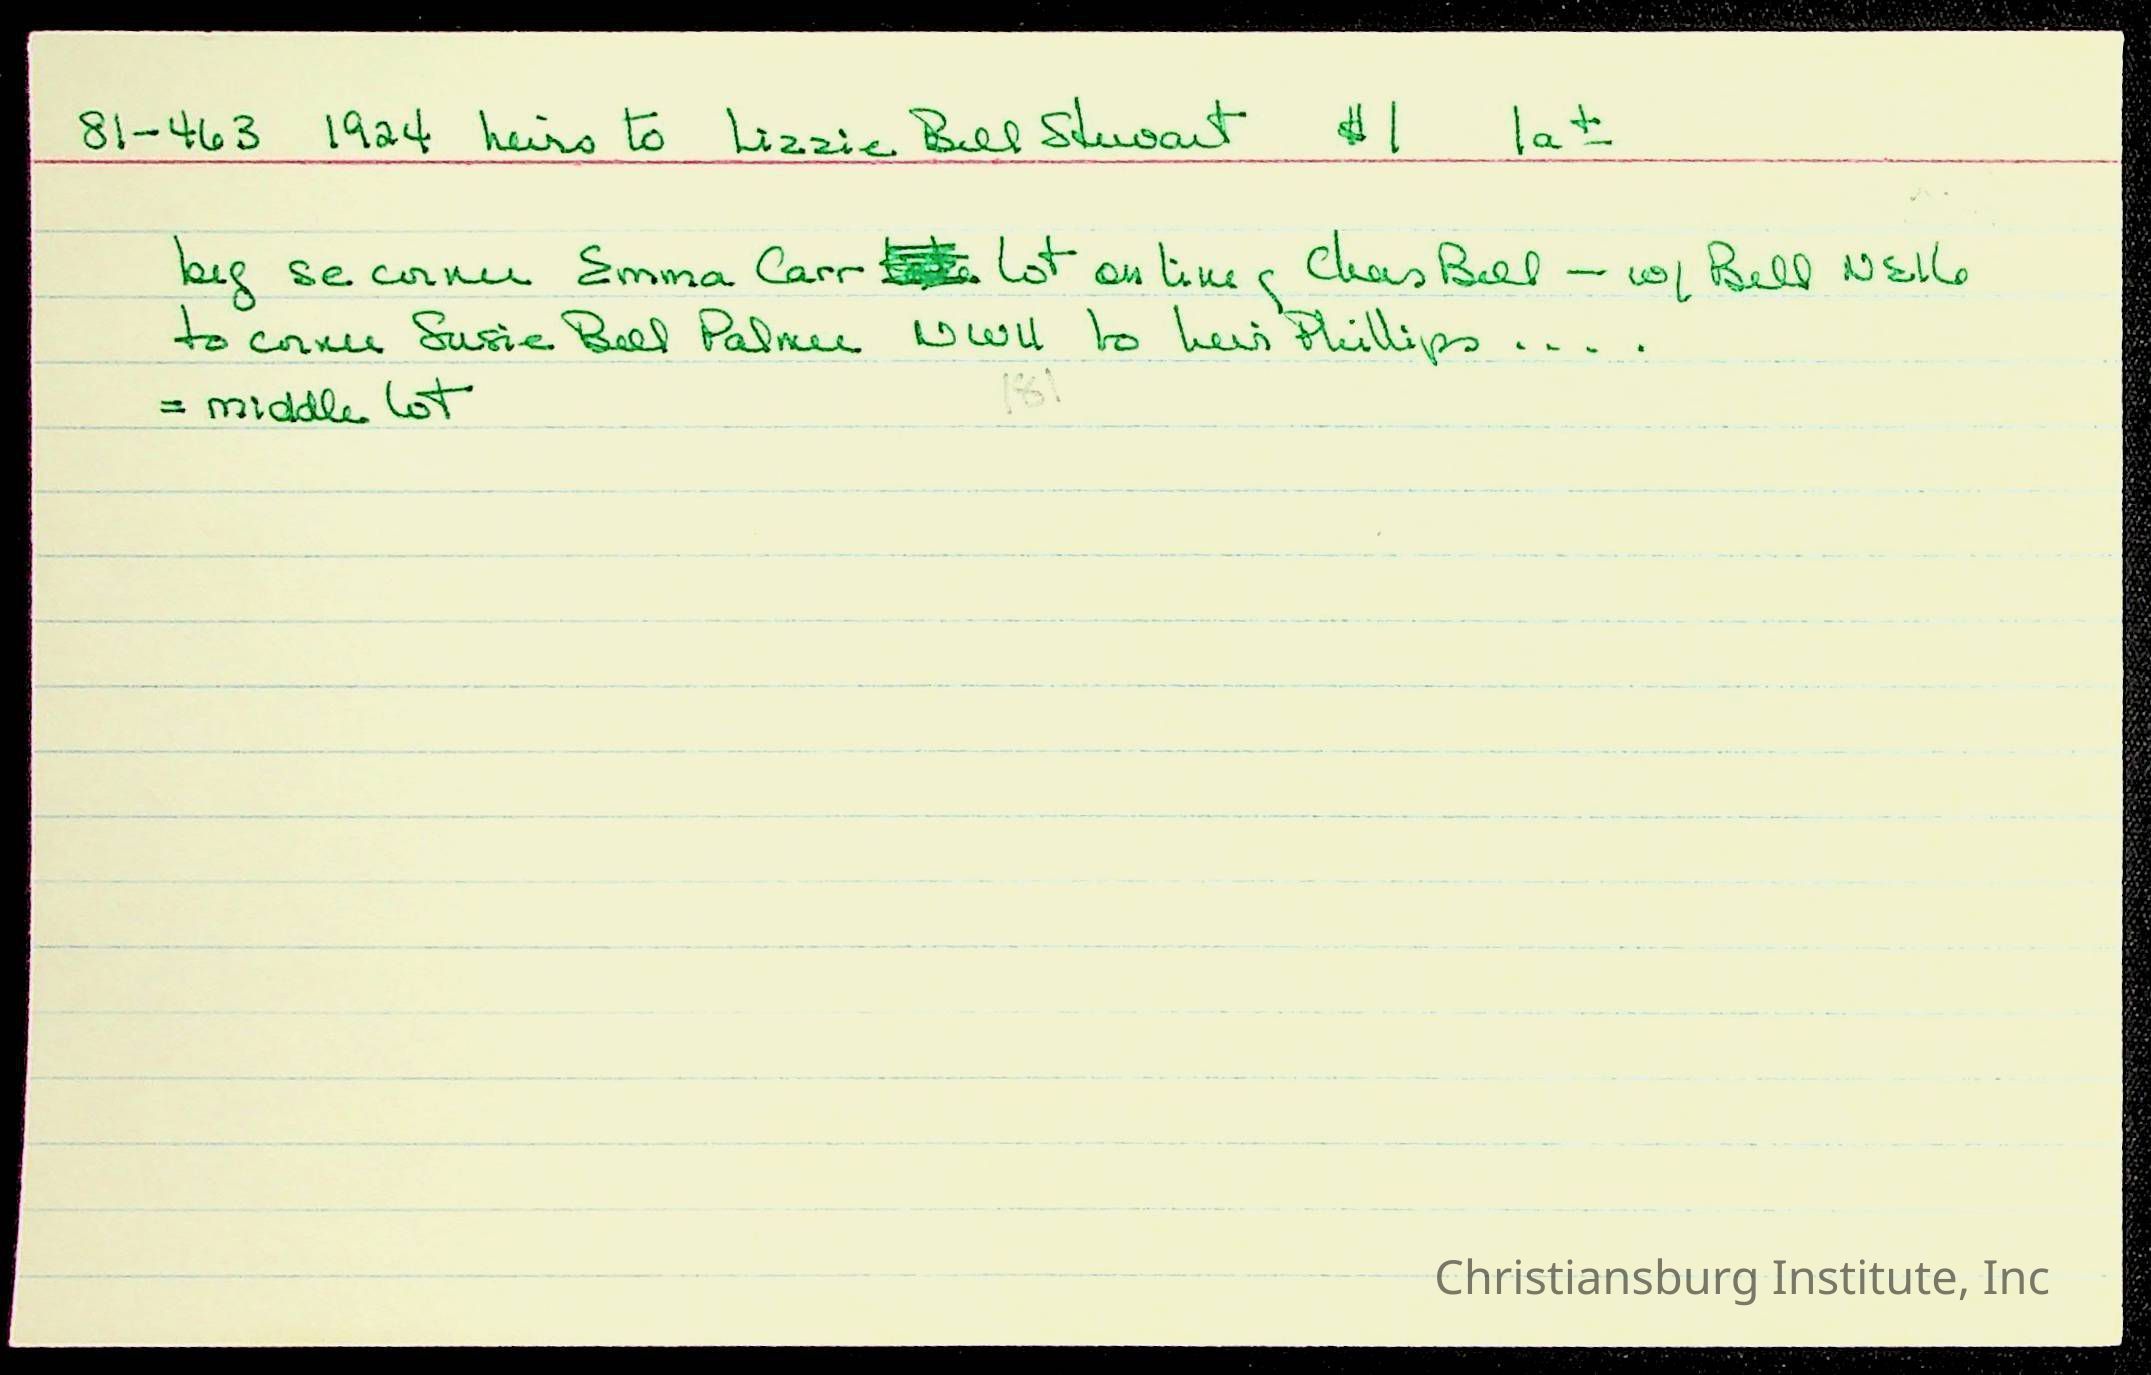 81-463 1924 heirs to Lizzie Bell Stewart $1 1a±
beg se corner Emma Carr lot on line of Chas Bell - w/ Bell NE16
to corner Susie Bell Palmer NW11 to heirs Phillips ....
= middle lot
181
Christiansburg Institute, Inc